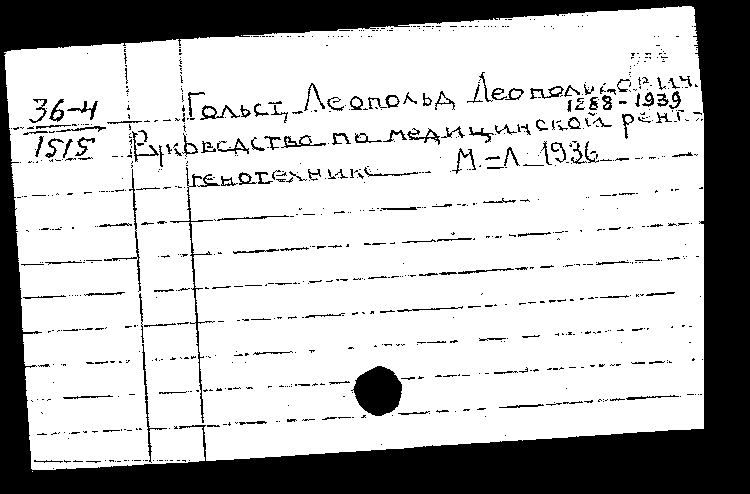 36-4
1515
Гольст, Леопольд Леопольдович.
1288-1939
Руководство по медицинской рент-
генотехнике М.-Л 1936